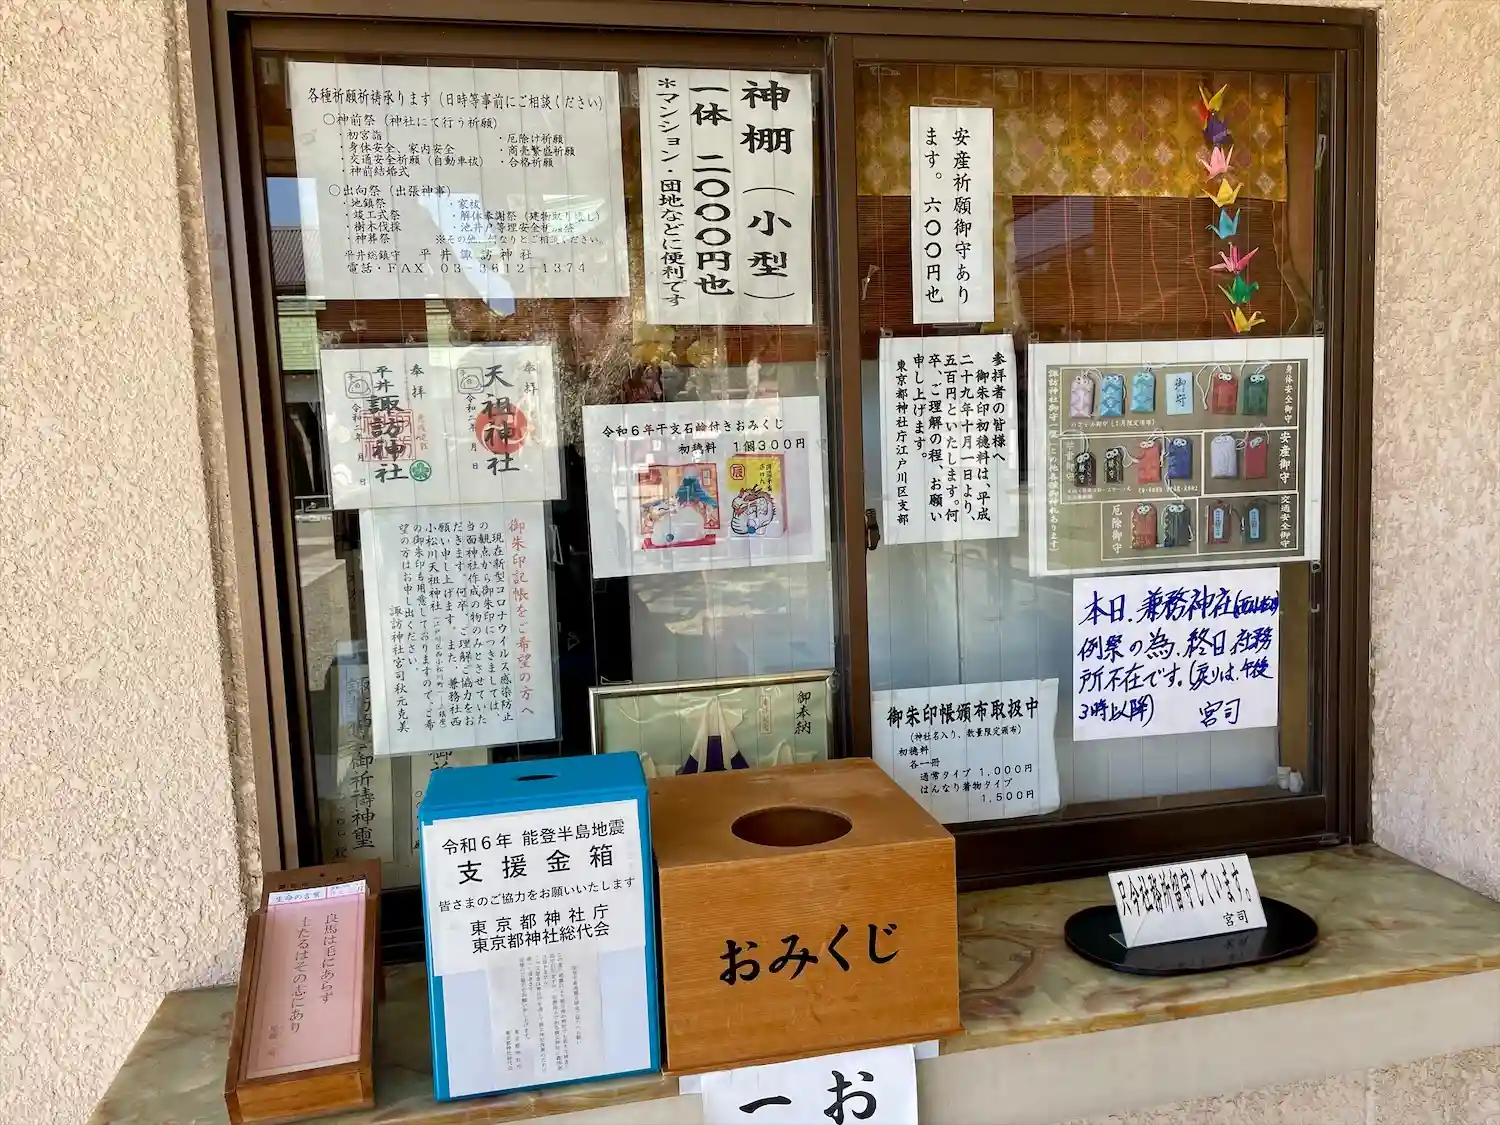 各種祈願祈祷承ります（日時等事前にご相談ください）
○神前祭（神社にて行う祈願）
・初宮詣
・身体安全、家内安全
・交通安全祈願（自動車祓）
・神前結婚式
・厄除け祈願
・商売繁盛祈願
・合格祈願
○出向祭（出張神事）
・地鎮祭
・竣工式祭
・樹木伐採
・神葬祭
・家祓
・解体奉謝祭（建物取り壊し）
・池井戸等埋安全祈願祭
平井総鎮守　平井諏訪神社
電話・FAX　03-3612-1374
神棚（小型）
一体　二〇〇〇円也
＊マンション・団地などに便利です
安産祈願御守あり
ます。六〇〇円也
奉拝
天祖神社
令和二年　月　日
奉拝
平井
諏訪神社
令和二年　月　日
令和６年干支石鹸付きおみくじ
初穂料　１個３００円
辰
参拝者の皆様へ
御朱印初穂料は、平成
二十九年十月一日より、
五百円といたします。何
卒、ご理解の程、お願い
申し上げます。
東京都神社庁江戸川区支部
身体安全御守
安産御守
交通安全御守
厄除御守
御守
勝守
御朱印記帳をご希望の方へ
現在新型コロナウイルス感染防止
の観点から御朱印につきましては、
当面神社作成の物のみとさせていた
だきます。何卒、ご理解ご協力をお
願い申し上げます。また、兼務社西
小松川天祖神社
の御朱印も用意しておりますので、ご希
望の方はお申し出ください。
諏訪神社宮司秋元克美
本日、兼務神社
例祭の為、終日社務
所不在です。（戻りは、午後
３時以降）　宮司
御朱印帳頒布取扱中
（神社名入り、数量限定頒布）
初穂料
各一冊
通常タイプ　１,０００円
はんなり着物タイプ
１,５００円
御奉納
御祈祷神璽
令和６年　能登半島地震
支援金箱
皆さまのご協力をお願いいたします
東京都神社庁
東京都神社総代会
おみくじ
只今社務所留守しています。
宮司
生命の言葉
良馬は毛にあらず
士たるはその志にあり
お
一